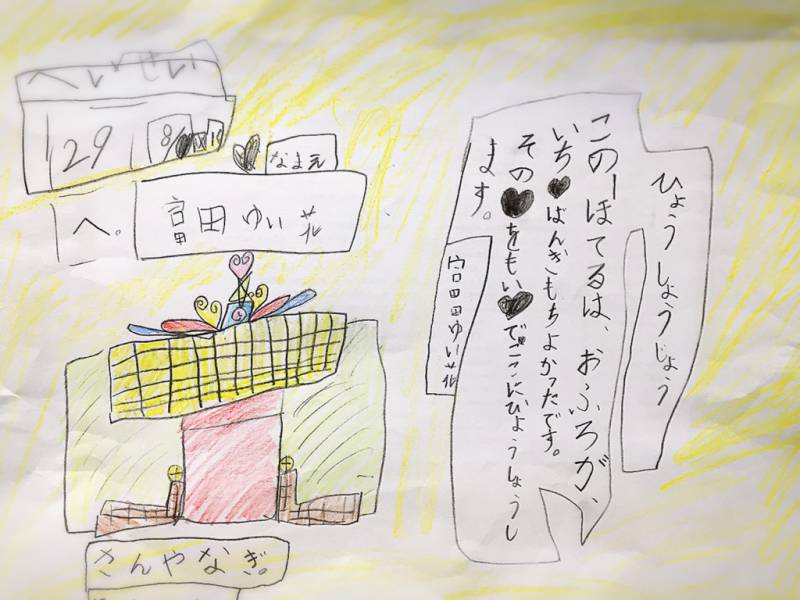 ひょうしょうじょう
このーほてるは、おふろが、
いち♥ばんぎもちよかったです。
その♥をもい♥でここにひょうしょうし
ます。
富田ゆい花
へいせい
29
8/
なまえ
富田ゆい花
へ。
さんやなぎ。